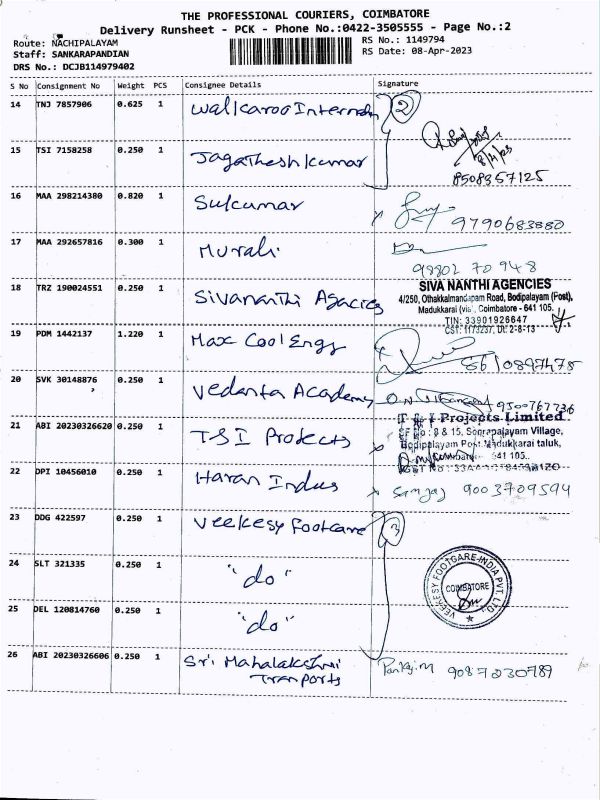 THE PROFESSIONAL COURIERS, COIMBATORE
Delivery Runsheet - PCK - Phone No.:0422-3505555 - Page No.:2
Route: NACHIPALAYAM
Staff: SANKARAPANDIAN
DRS No.: DCJB114979402
RS No.: 1149794
RS Date: 08-Apr-2023
S No Consignment No Weight PCS Consignee Details Signature
14 TNJ 7857906 0.625 1 Walkaroo Internatn 2
8/4/23
15 TSI 7158258 0.250 1 Jagatheshkumar 8508357125
16 MAA 298214380 0.820 1 Sukumar 9790683880
17 MAA 292657816 0.300 1 Murali
98802 70 948
18 TRZ 190024551 0.250 1 Sivananthi Agacies
SIVA NANTHI AGENCIES
4/250, Othakkalmandapam Road, Bodipalayam (Post),
Madukkarai (via), Coimbatore - 641 105.
TIN: 33901926647
CST: 1173237, Dt: 2-8-13
19 PDM 1442137 1.220 1 Max CoolEngg 8610897475
20 SVK 30148876 0.250 1 Vedanta Academy 9500767736
21 ABI 20230326620 0.250 1 TSI Projects
T S I Projects Limited
SF No : 8 & 15, Seerapalayam Village,
Bodipalayam Post Madukkarai taluk,
641 105.
22 DPI 10456010 0.250 1 Haran Indus Sanjay 9003709594
23 DDG 422597 0.250 1 Veekesy Footcare 3
24 SLT 321335 0.250 1 "do"
VEEKESY FOOTCARE INDIA PVT. LTD.
COIMBATORE
25 DEL 120814760 0.250 1 "do"
26 ABI 20230326606 0.250 1 Sri Mahalakshmi
Tranports
Pankaj.m 9087230789